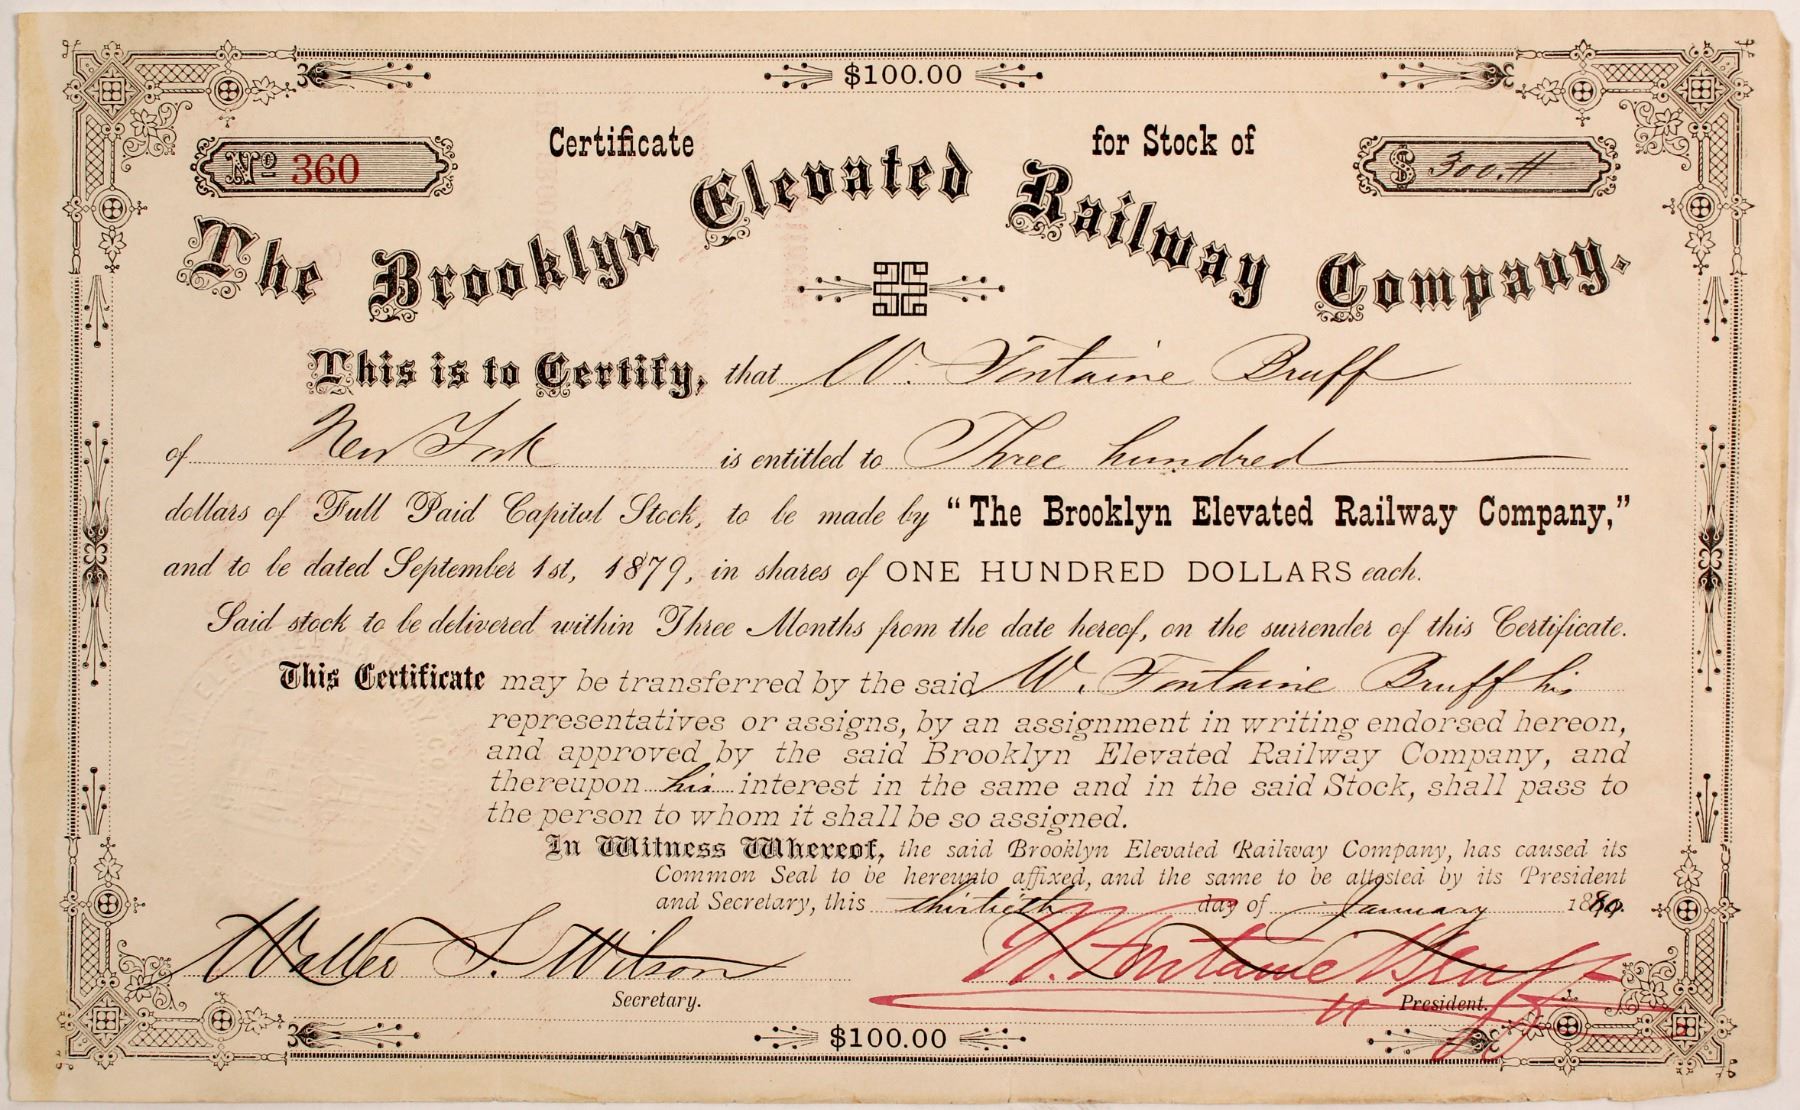 $100.00
Certificate for Stock of
Nº 360
$ 300.
The Brooklyn Elevated Railway Company.
This is to Certify, that W. Fontaine Bruff
of New York is entitled to Three hundred
dollars of Full Paid Capital Stock, to be made by "The Brooklyn Elevated Railway Company,"
and to be dated September 1st, 1879, in shares of ONE HUNDRED DOLLARS each.
Said stock to be delivered within Three Months from the date hereof, on the surrender of this Certificate.
This Certificate may be transferred by the said W. Fontaine Bruff his
representatives or assigns, by an assignment in writing endorsed hereon,
and approved by the said Brooklyn Elevated Railway Company, and
thereupon his interest in the same and in the said Stock, shall pass to
the person to whom it shall be so assigned.
In Witness Whereof, the said Brooklyn Elevated Railway Company, has caused its
Common Seal to be hereunto affixed, and the same to be attested by its President
and Secretary, this thirtieth day of January
Walter S. Wilson W. Fontaine Bruff
Secretary. President.
$100.00